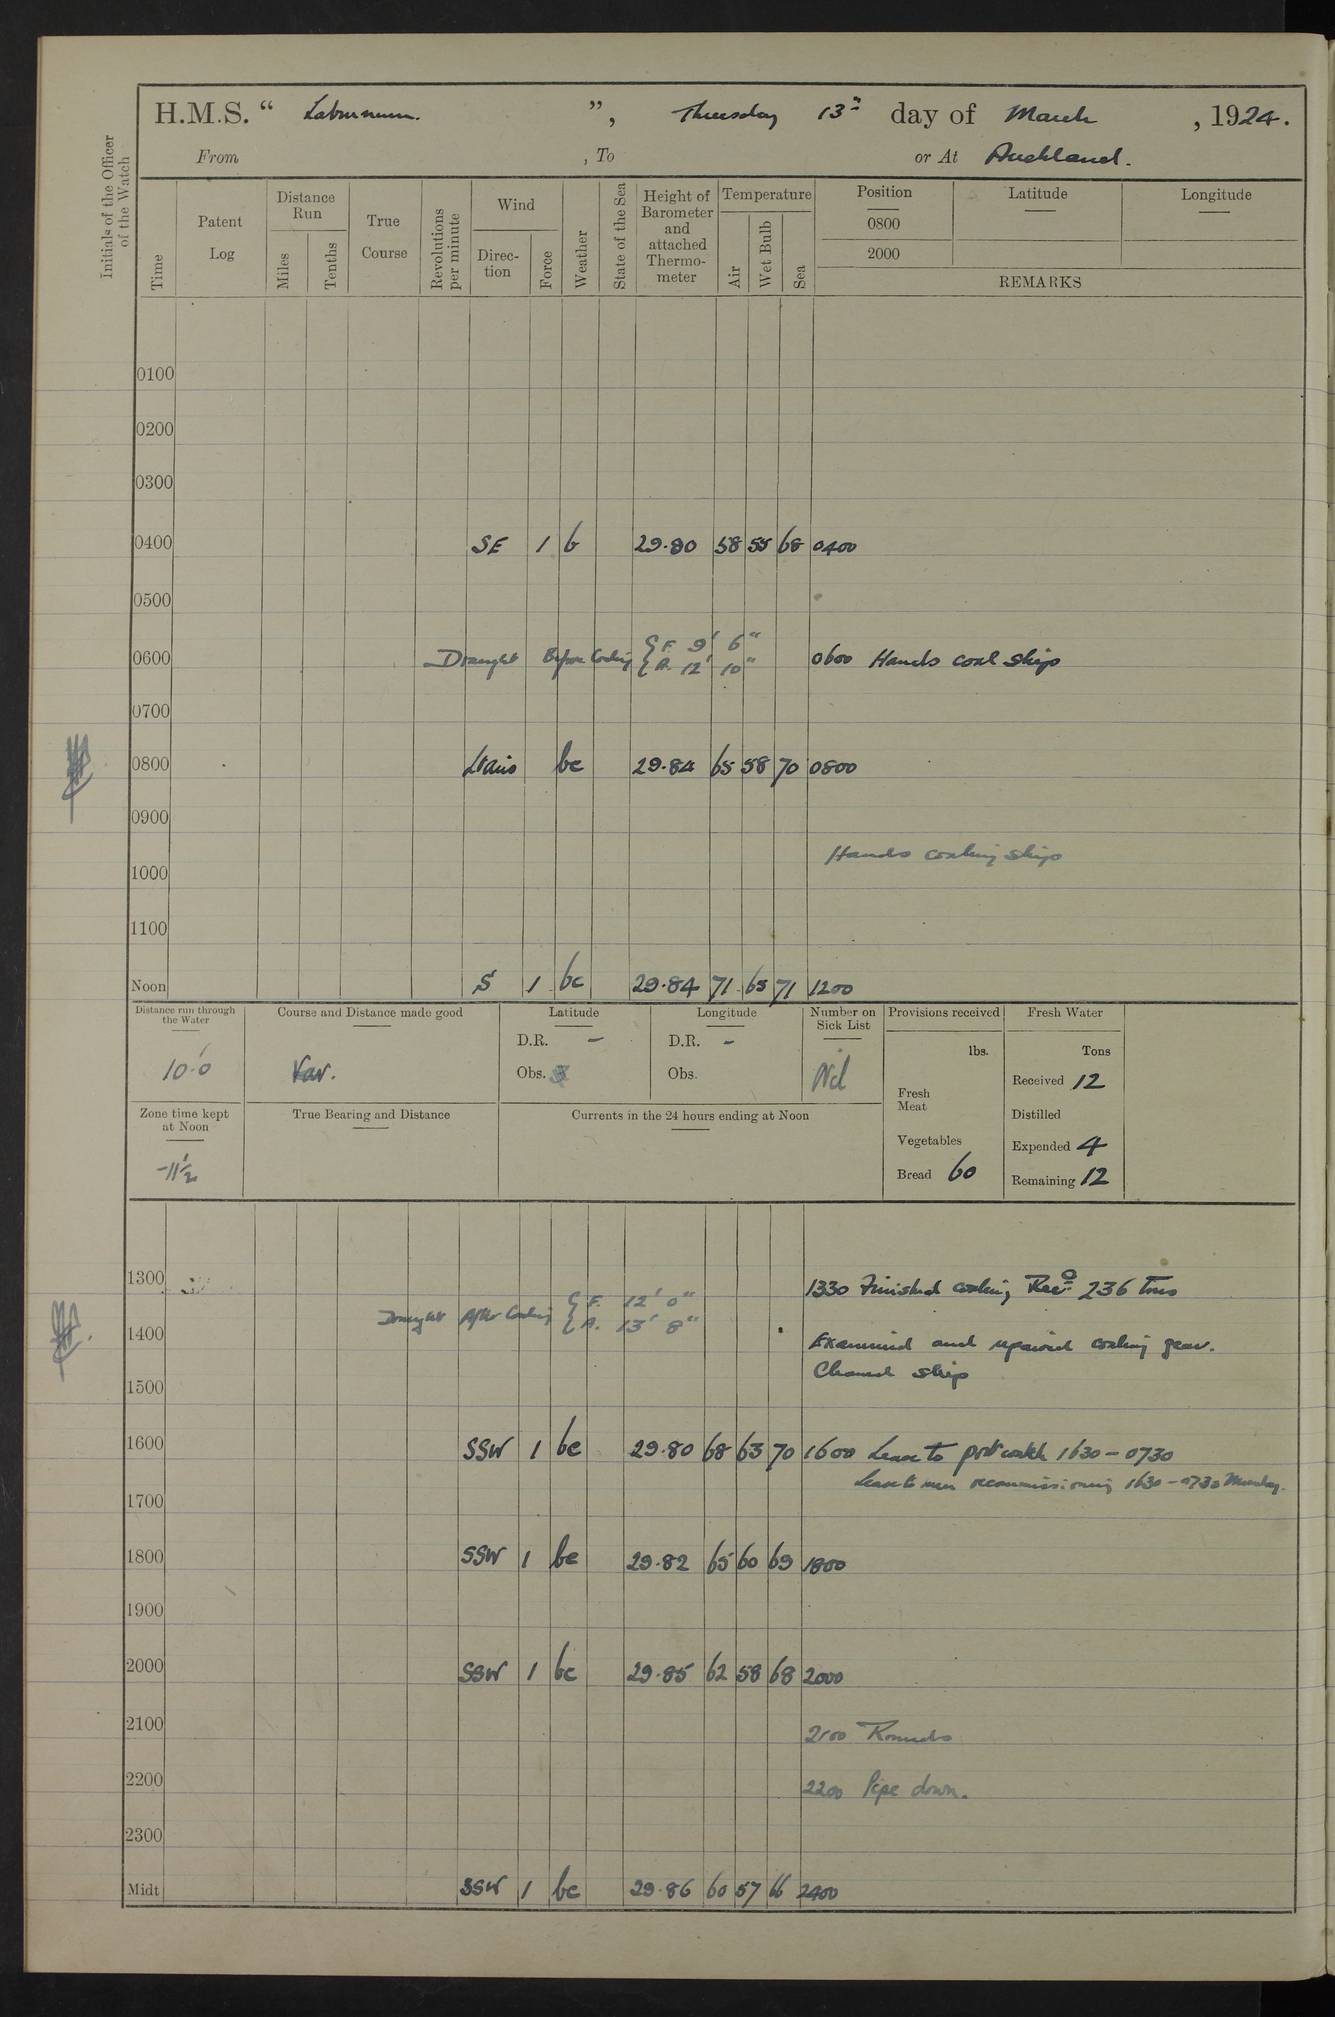 H.M.S. “ Laburnum. ”, Thursday 13th day of March , 1924.
From , To or At Auckland.
Initials of the Officer of the Watch
Time
Patent Log
Distance Run
Miles
Tenths
True Course
Revolutions per minute
Wind
Direc- tion
Force
Weather
State of the Sea
Height of Barometer and attached Thermo- meter
Temperature
Air
Wet Bulb
Sea
Position
Latitude
Longitude
0800
2000
REMARKS
0100
0200
0300
0400 SE 1 b 29.80 58 55 68 0400
0500
Draught Before Coaling { F. 9' 6"
0600 { A. 12' 10" 0600 Hands coal ship
0700
0800 Lt airs bc 29.84 65 58 70 0800
0900
Hands coaling ship
1000
1100
Noon S 1 bc 29.84 71 65 71 1200
Distance run through the Water
Course and Distance made good
Latitude
Longitude
Number on Sick List
Provisions received
Fresh Water
D.R. –
D.R. –
lbs.
Tons
10.0
Var.
Obs.
Obs.
Nil
Received 12
Fresh Meat
Distilled
Zone time kept at Noon
True Bearing and Distance
Currents in the 24 hours ending at Noon
Vegetables
Expended 4
-11½
Bread 60
Remaining 12
1300 1330 Finished coaling Recd 236 Tons
Draught After Coaling { F. 12' 0"
{ A. 13' 8"
1400 Examined and repaired coaling gear.
Cleaned ship
1500
1600 SSW 1 bc 29.80 68 63 70 1600 Leave to port watch 1630 – 0730
Leave to men recommissioning 1630 – 0730 Monday.
1700
1800 SSW 1 bc 29.82 65 60 69 1800
1900
2000 SSW 1 bc 29.85 62 58 68 2000
2100 2100 Rounds
2200 2200 Pipe down.
2300
Midt SSW 1 bc 29.86 60 57 66 2400